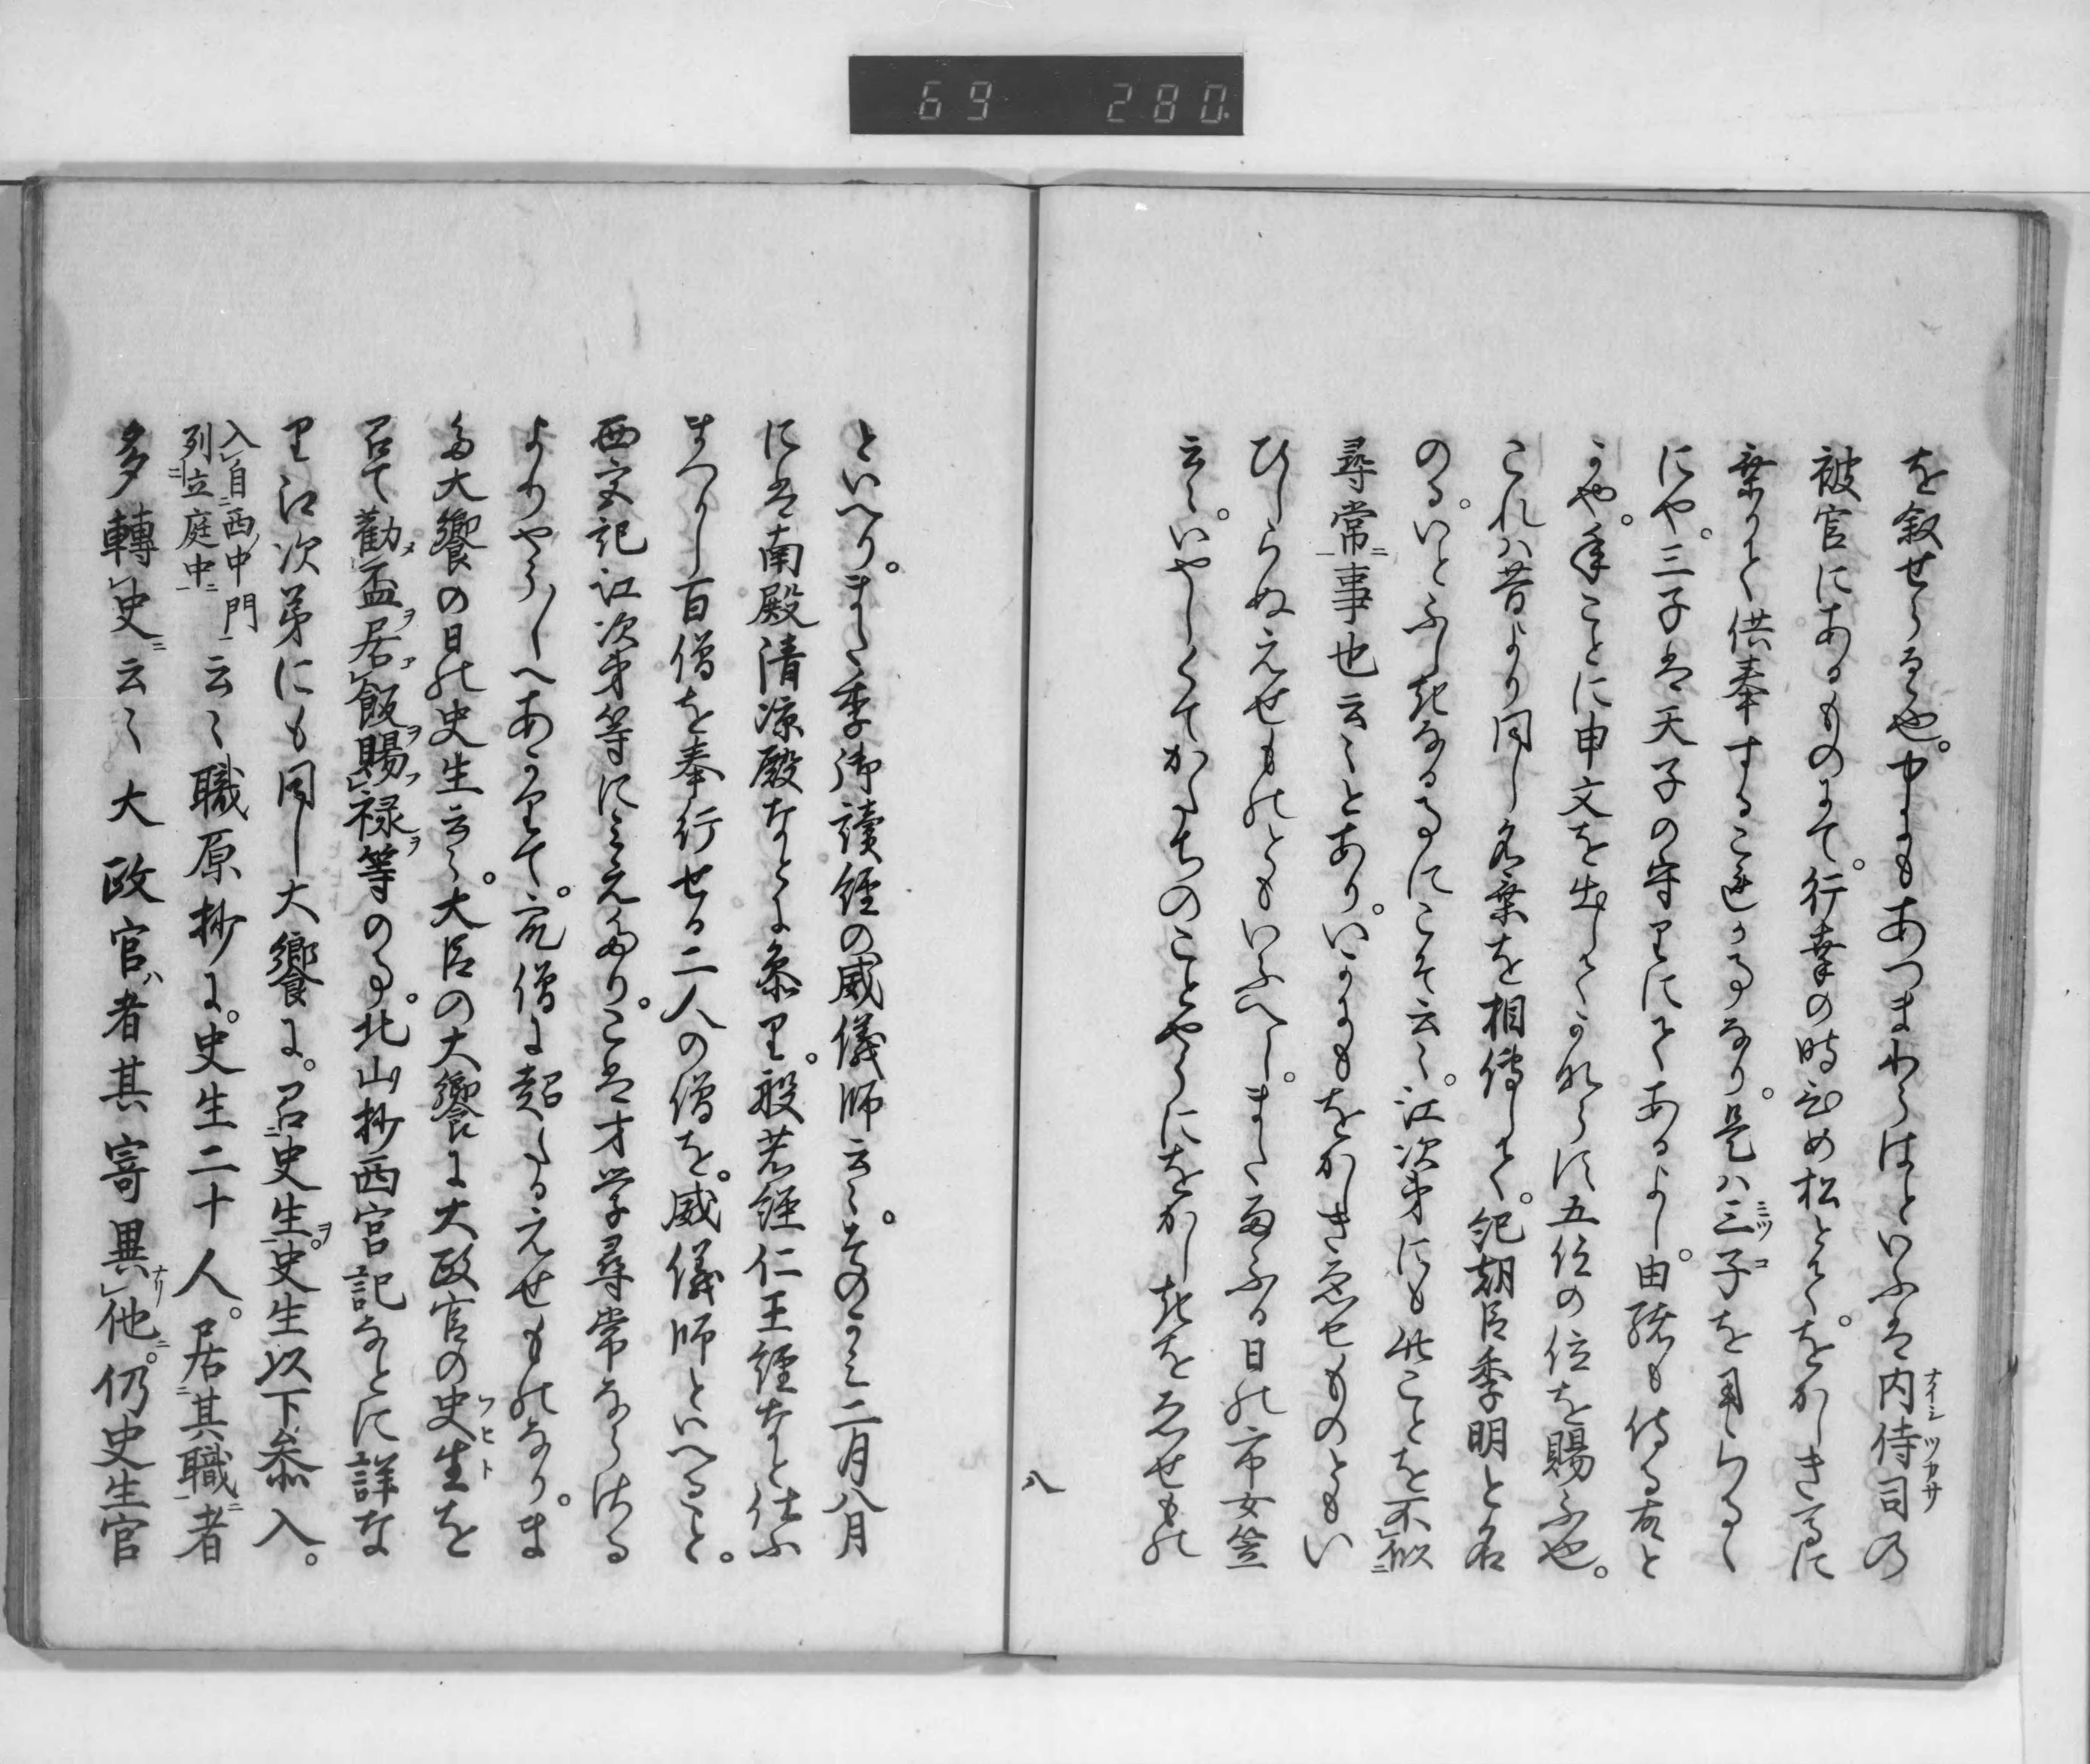 69 280
を叙せらるゝ也。中にもあつまわらはといふは内侍司の
被官にあるものにて。行幸の時ひめ松とて。をかしき馬に
乗りて供奉することしかるなり。是ハ三子を用らるゝ
にや。三子は天子の守りにてあるよし。由緒も侍る友と
かや。年ことに申文を出してかならす五位の位を賜ふ也。
これハ昔より同し名乗を相傳して。紀朝臣季明と名
のる。いとふしきなる事にこそ云〻。江次第にも此ことを不似
尋常事也云〻とあり。いかにもをかしきゑせものともい
ひしらぬえせものともいふへし。また雨ふる日の市女笠
云〻。いやしくてかたちのことやうにをかしきをゑせもの
八
といへり。また季御讀経の威儀師云〻。そのかみ二月八月
に是南殿清涼殿なとに参り。般若經仁王經なと仕ふ
まつりし百僧を奉行せる二人の僧を。威儀師といへること。
西宮記江次第等にみえたり。こは才学尋常ならさる
よりやうしへあかりて。宛僧に超たるえせものなり。ま
た大饗の日の史生云〻。大臣の大饗に大政官の史生を
召て勧盃居飯賜禄等の事。北山抄西宮記なとに詳な
り江次第にも同し大饗に。召史生。史生以下参入。
入自西中門
列立庭中
云〻職原抄に。史生二十人。居其職者
多轉史云〻大政官者其寄異他。仍史生官